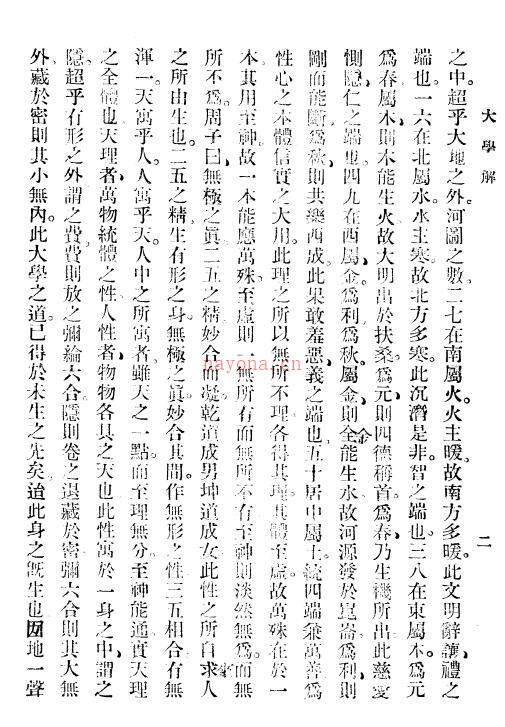 大學解
二
之中。超乎大地之外。河圖之數。二七在南屬火。火主暖。故南方多暖。此文明辭讓。禮之
端也。一六在北屬水。水主寒。故北方多寒。此沉潛是非。智之端也。三八在東屬木。為元
為春。屬木則木能生火。故大明出於扶桑。為元則四德稱首。為春乃生機所出。此慈愛
惻隱。仁之端也。四九在西屬金。為利為秋。屬金則金能生水。故河源發於崑崙。為利則
剛而能斷。為秋則共樂西成。此果敢羞惡。義之端也。五十居中屬土。統四端兼萬善。為
性心之本體。信實之大用。此理之所以無所不理。各得其理。其體至虛。故萬殊在於一
本。其用至神。故一本能應萬殊。至虛則一無所有。而無所不有。至神則淡然無為。而無
所不為。周子曰。無極之眞。二五之精。妙合而凝。乾道成男。坤道成女。此性之所自求。人
之所由生也。二五之精。生有形之身。無極之眞。妙合其間。作無形之性。三五相合。有無
渾一。天寓乎人。人寓乎天。人中之所寓者。雖天之一點。而至理無分。至神能通。實天理
之全體也。天理者。萬物統體之性。人性者。物物各具之天也。此性寓於一身之中。謂之
隱。超乎有形之外。謂之費。費則放之彌綸六合。隱則卷之退藏於密。彌六合則其大無
外。藏於密則其小無內。此大學之道。已得於未生之先矣。迨此身之既生也。㘞地一聲
nayona.cn